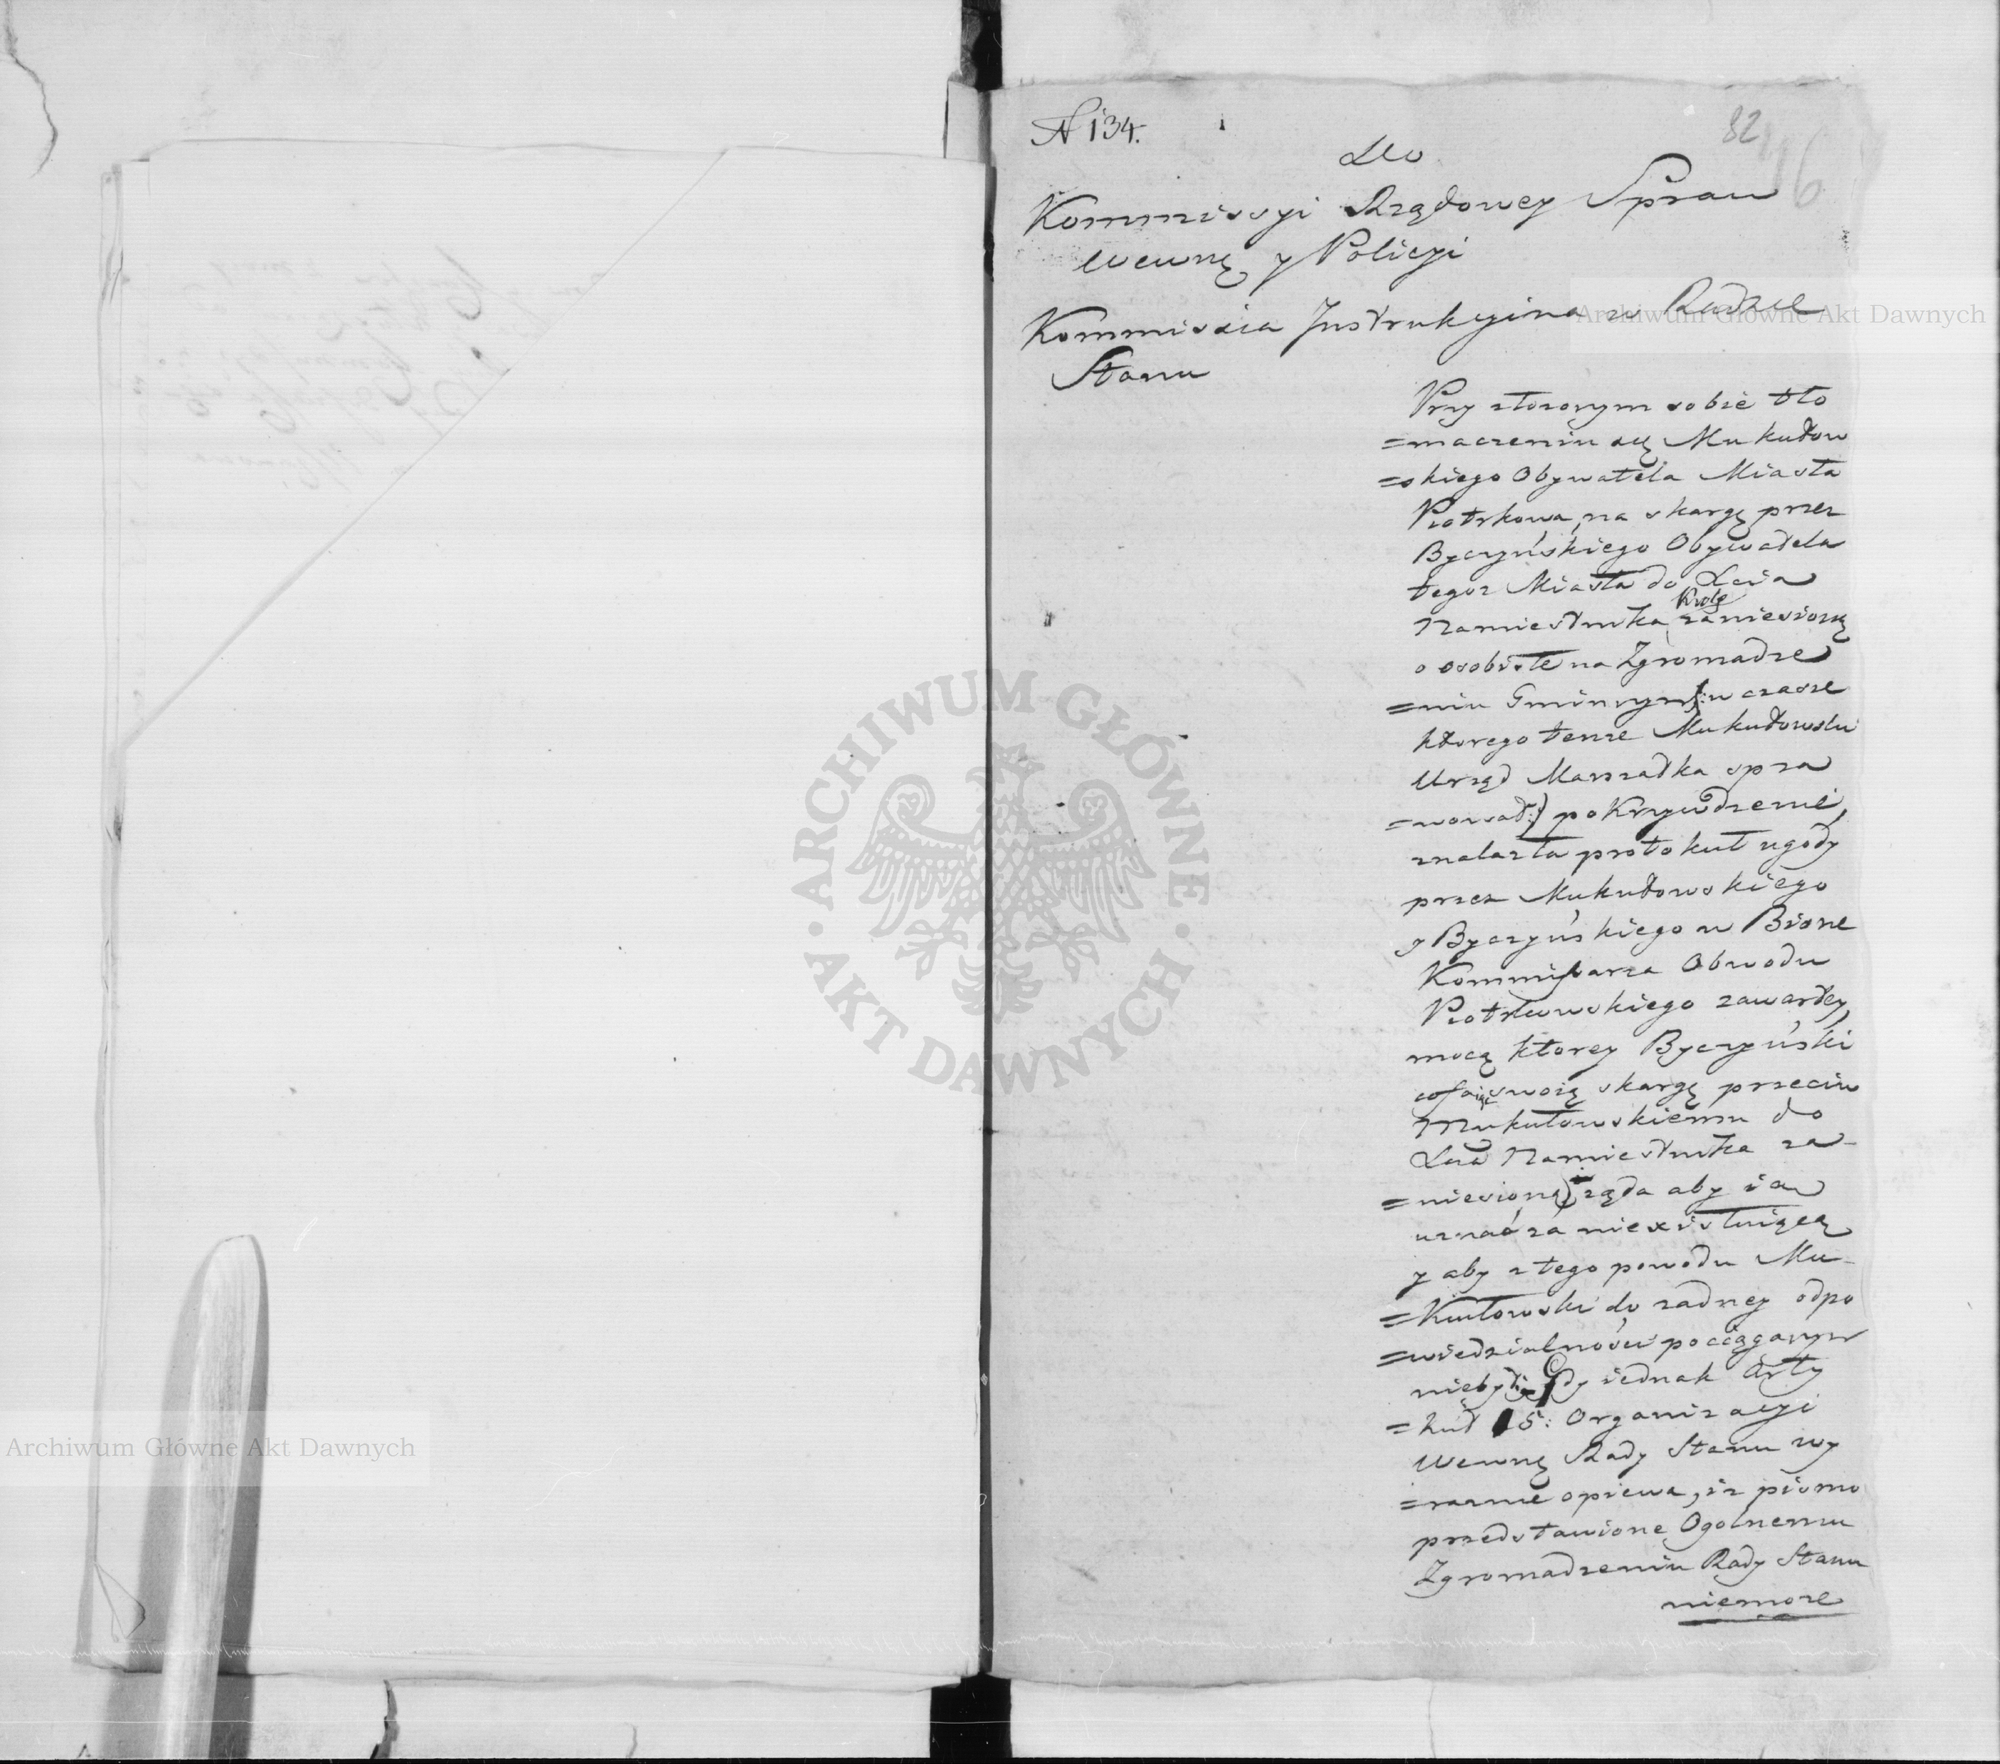 N 134.
82
116
Do
Kommissyi Rządowey Spraw
Wewnę y Policyi
Kommissia Instrukcyina w Radzie
Stanu
Przy złożonym sobie tło
=maczeniu się Mukułow
=skiego Obywatela Miasta
Piotrkowa, na skargę przez
Byczyńskiego Obywatela
tegoz Miasta do Xcia
Namiestnika Krolo zaniesioną
o osobiste na Zgromadze
=niu Gminnym (:w czasie
ktorego tenze Mukułowski
Urząd Marszałka spra
=wował:) pokrzywdzenie,
znalazła protokuł ugody
przez Mukułowskiego
y Byczyńskiego w Biorze
Kommissarza Obwodu
Piotrkowskiego zawartey,
mocą ktorey Byczyński
cofaiąc swoią skargę przeciw
Mukułowskiemu do
Xcia Namiestnika za-
=niesioną, ząda aby ią
uznać za niexistuiącą
y aby z tego powodu Mu-
=kułowski do zadney odpo
=wiedzialności pociąganym
niebył. Gdy iednak Arty
=kuł 15: Organizacyi
Wewnę Rady Stanu wy
=raznie opiewa, iz pismo
przedstawione Ogolnemu
Zgromadzeniu Rady Stanu
niemoze
ARCHIWUM GŁÓWNE · AKT DAWNYCH ·
Archiwum Główne Akt Dawnych
Archiwum Główne Akt Dawnych